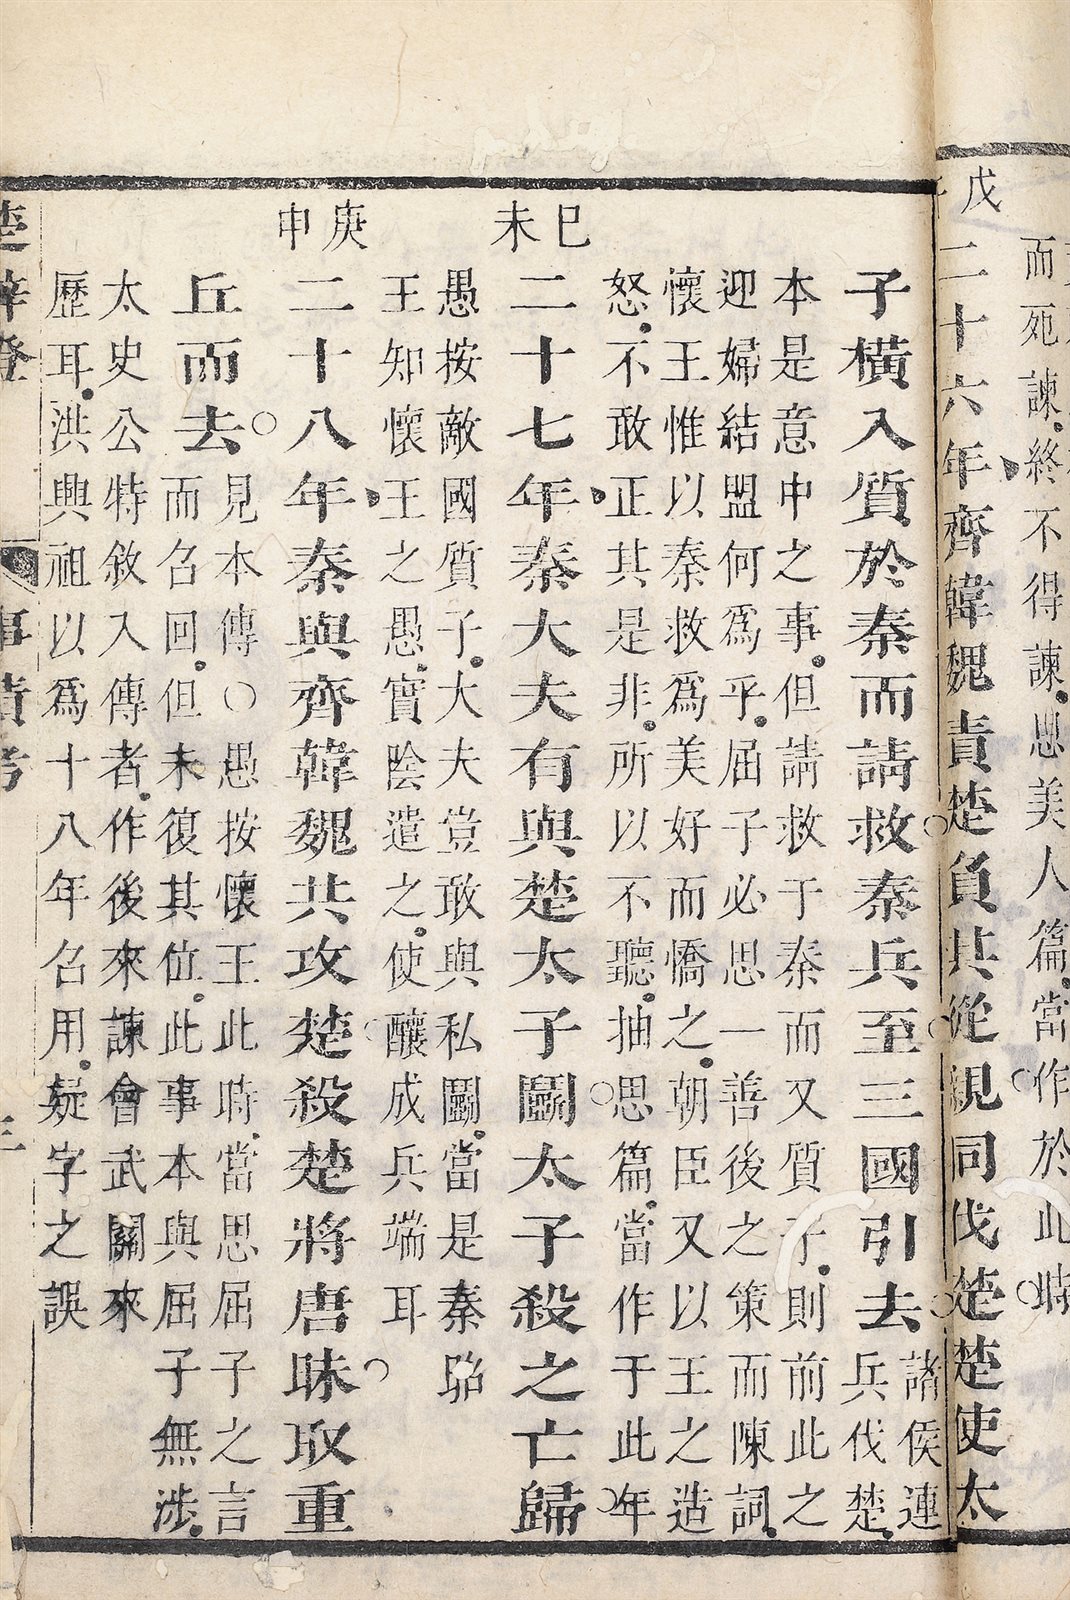 而死諫終不得諫思美人篇當作於此時
戊
二十六年齊韓魏責楚負其從親同伐楚楚使太
子橫入質於秦而請救秦兵至三國引去諸侯連
兵伐楚
本是意中之事但請救于秦而又質子則前此之
迎婦結盟何爲乎屈子必思一善後之策而陳詞
懷王惟以秦救爲美好而憍之朝臣又以王之造
怒不敢正其是非所以不聽抽思篇當作于此年
己未
二十七年秦大夫有與楚太子鬬太子殺之亡歸
愚按敵國質子大夫豈敢與私鬬當是秦昭
王知懷王之愚實陰遣之使釀成兵端耳
庚申
二十八年秦與齊韓魏共攻楚殺楚將唐昧取重
丘而去見本傳○愚按懷王此時當思屈子之言
而召回但未復其位此事本與屈子無涉
太史公特敘入傳者作後來諫會武關來
歷耳洪興祖以爲十八年召用疑字之誤
楚辭燈
事蹟考
三